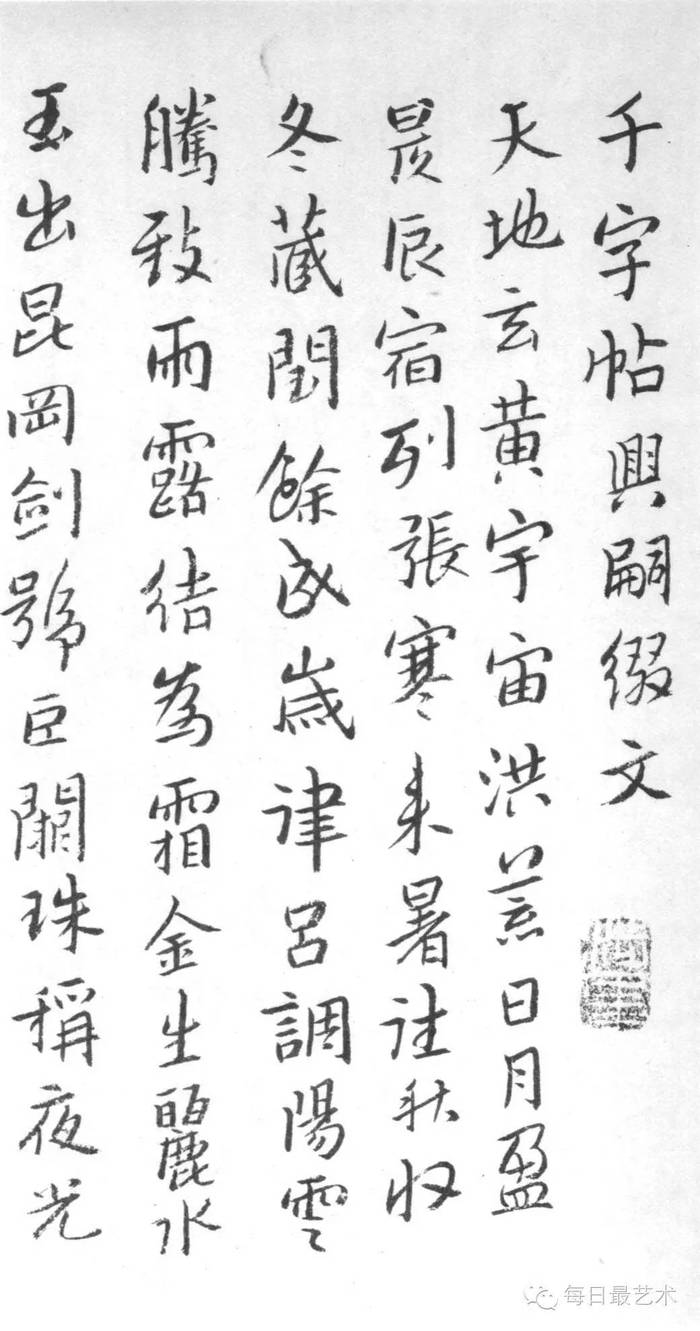 千字帖興嗣缀文
天地玄黄宇宙洪荒日月盈
昃辰宿列張寒来暑往秋收
冬蔵閏餘成歳律吕調陽雲
騰致雨露结為霜金生麗水
玉出昆岡劍號巨闕珠稱夜光
每日最艺术